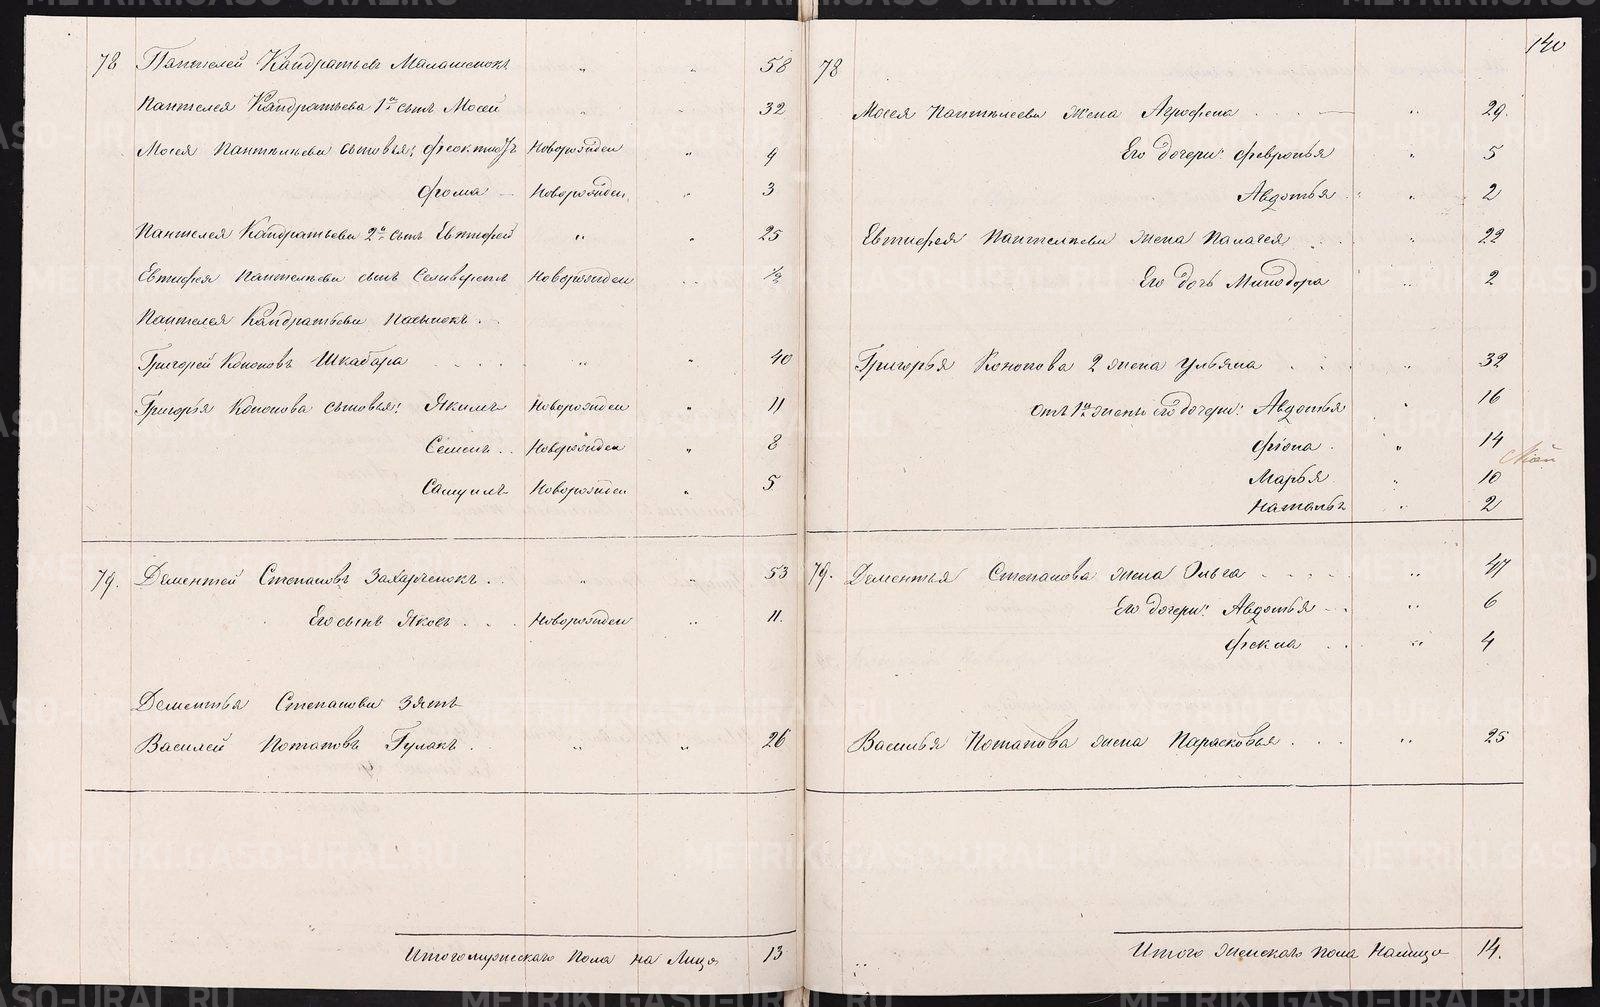 78 Пантелей Кандратьевъ Малашенокъ " " 58
Пантелея Кандратьева 1й сынъ Мосей " " 32
Мосея Пантелѣева сыновья: Феоктистъ Новорожден " 9
Фома Новорожден " 3
Пантелея Кандратьева 2й сынъ Евтифей " " 25
Евтифея Пантелѣева сынъ Селиверстъ Новорожден " 1/2
Пантелея Кандратьева пасынокъ
Григорей Кононовъ Шкабара " " 40
Григорья Кононова сыновья: Якимъ Новорожден " 11
Семенъ Новорожден " 8
Самуилъ Новорожден " 5
79. Дементей Степановъ Захарченокъ " " 53
Его сынъ Яковъ Новорожден " 11.
Дементья Степанова зять
Василей Потаповъ Гулакъ " " 26
Итого мужескаго пола на лицо 13
140
78
Мосея Пантелѣева жена Агрофена " 29.
Его дочери: Февронья " 5
Авдотья " 2
Евтифея Пантелѣева жена Палагея " 22
Его дочь Минодора " 2
Григорья Кононова 2 жена Ульяна " 32
отъ 1й жены его дочери: Авдотья " 16
Фіона " 14
Марья " 10
Наталья " 2
79. Дементья Степанова жена Ольга " 47
Его дочери: Авдотья " 6
Фекла " 4
Василья Потапова жена Парасковья " 25
Итого женскаго пола налицо 14.
METRIKI.GASO-URAL.RU